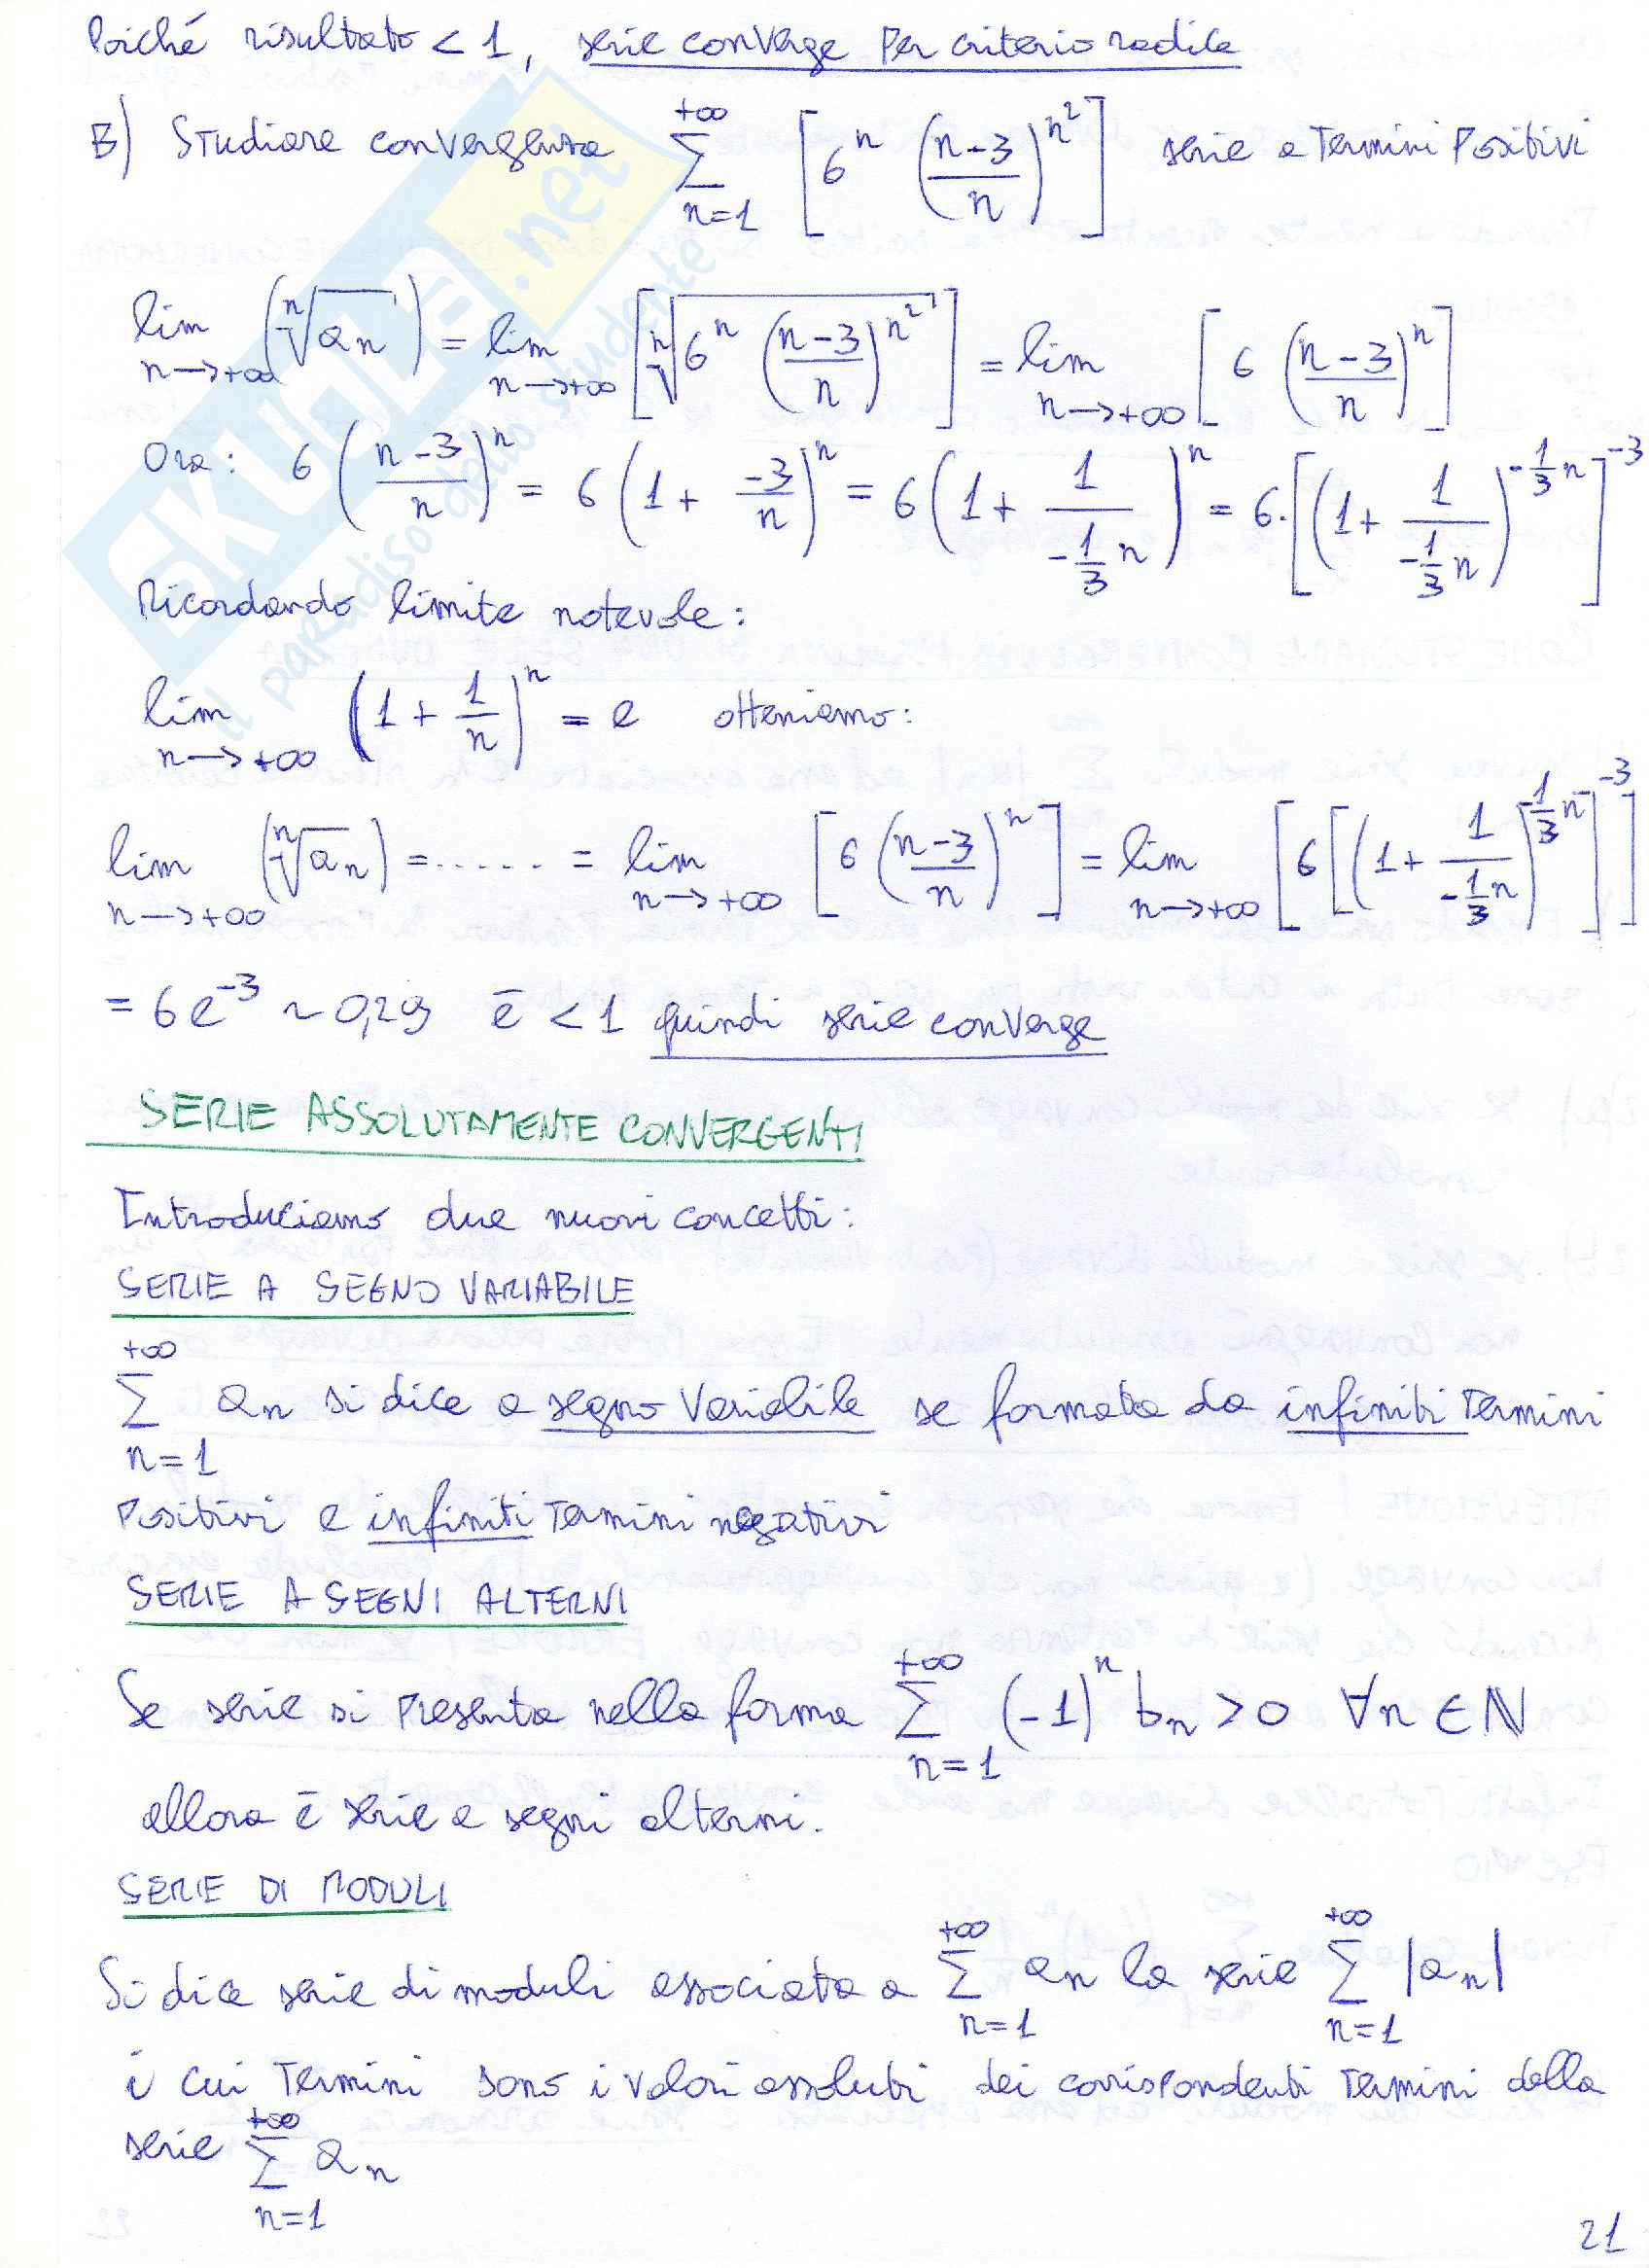 Poiché risultato < 1, serie converge per criterio radice
B) Studiare convergenza \sum_{n=1}^{+\infty} [6^n ((n-3)/n)^{n^2}] serie a termini positivi
lim_{n→+∞} (\sqrt[n]{a_n}) = lim_{n→+∞} [\sqrt[n]{6^n ((n-3)/n)^{n^2}}] = lim_{n→+∞} [6 ((n-3)/n)^n]
Ora: 6 ((n-3)/n)^n = 6 (1 + -3/n)^n = 6 (1 + 1/(-1/3 n))^n = 6·[(1 + 1/(-1/3 n))^{-1/3 n}]^{-3}
Ricordando limite notevole:
lim_{n→+∞} (1 + 1/n)^n = e otteniamo:
lim_{n→+∞} (\sqrt[n]{a_n}) = ...... = lim_{n→+∞} [6 ((n-3)/n)^n] = lim_{n→+∞} [6 [(1 + 1/(-1/3 n))^{-1/3 n}]^{-3}]
= 6e^{-3} ~ 0,29 è < 1 quindi serie converge
SERIE ASSOLUTAMENTE CONVERGENTI
Introduciamo due nuovi concetti:
SERIE A SEGNO VARIABILE
\sum_{n=1}^{+\infty} a_n si dice a segno variabile se formata da infiniti termini
positivi e infiniti termini negativi
SERIE A SEGNI ALTERNI
Se serie si presenta nella forma \sum_{n=1}^{+\infty} (-1)^n b_n > 0 ∀n ∈ ℕ
allora è serie a segni alterni.
SERIE DI MODULI
Si dice serie di moduli associata a \sum_{n=1}^{+\infty} a_n la serie \sum_{n=1}^{+\infty} |a_n|
i cui termini sono i valori assoluti dei corrispondenti termini della
serie \sum_{n=1}^{+\infty} a_n
21
SKUOLA.net
il paradiso dello studente